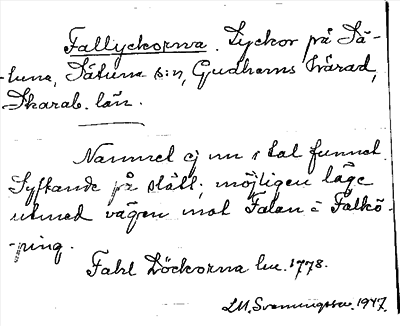 Fallyckorna. Lyckor på Så-
tuna, Såtuna s:n, Gudhems härad,
Skarab. län.
Namnet ej nu i tal funnet.
Syftande på ställ; möjligen läge
utmed vägen mot Falan i Falkö-
ping.
Fahl Löckorna lm. 1778.
LM. Svenungsson. 1947.